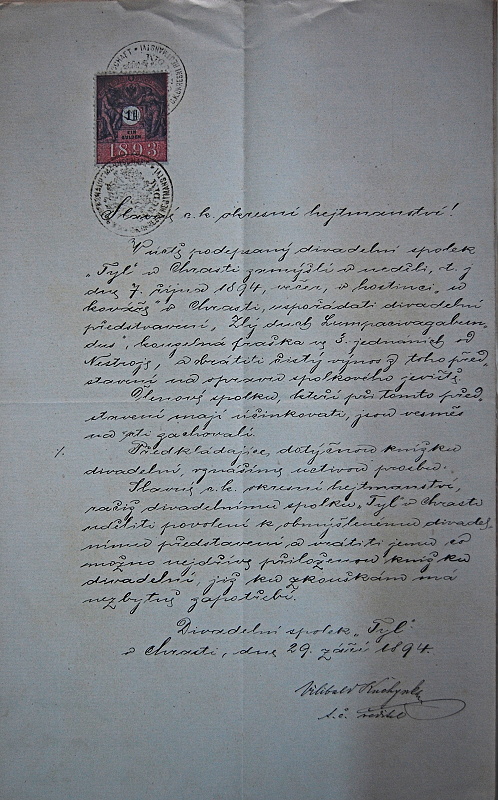 1
EIN
GULDEN
1893
Slavné c.k. okresní hejtmanství!
V úctě podepsaný divadelní spolek
„Tyl“ v Chrasti zamýšlí v neděli, t. j.
dne 7. října 1894, večer, v hostinci „u
kovářů“ v Chrasti, uspořádati divadelní
představení, „Zlý duch Lumpacivagabun-
dus“, kouzelná fraška ve 3. jednáních od
Nestroje, a obrátiti čistý výnos z toho před-
stavení na opravu spolkového jeviště.
Členové spolku, kteří při tomto před-
stavení mají účinkovati, jsou vesměs
zachovalí.
./. Předkládajíce, dotyčnou knížku
divadelní, vznášíme uctivou prosbu:
Slavné c.k. okresní hejtmanství,
račiž divadelnímu spolku „Tyl“ v Chrasti
uděliti povolení k obmýšlenému divadel-
nímu představení a vrátiti jemu co
možno nejdříve přiloženou knížku
divadelní, jíž ku zkouškám má
nezbytně zapotřebí.
Divadelní spolek „Tyl“
v Chrasti, dne 29. září 1894.
Vilibald Kuchynka
t.č. ředitel